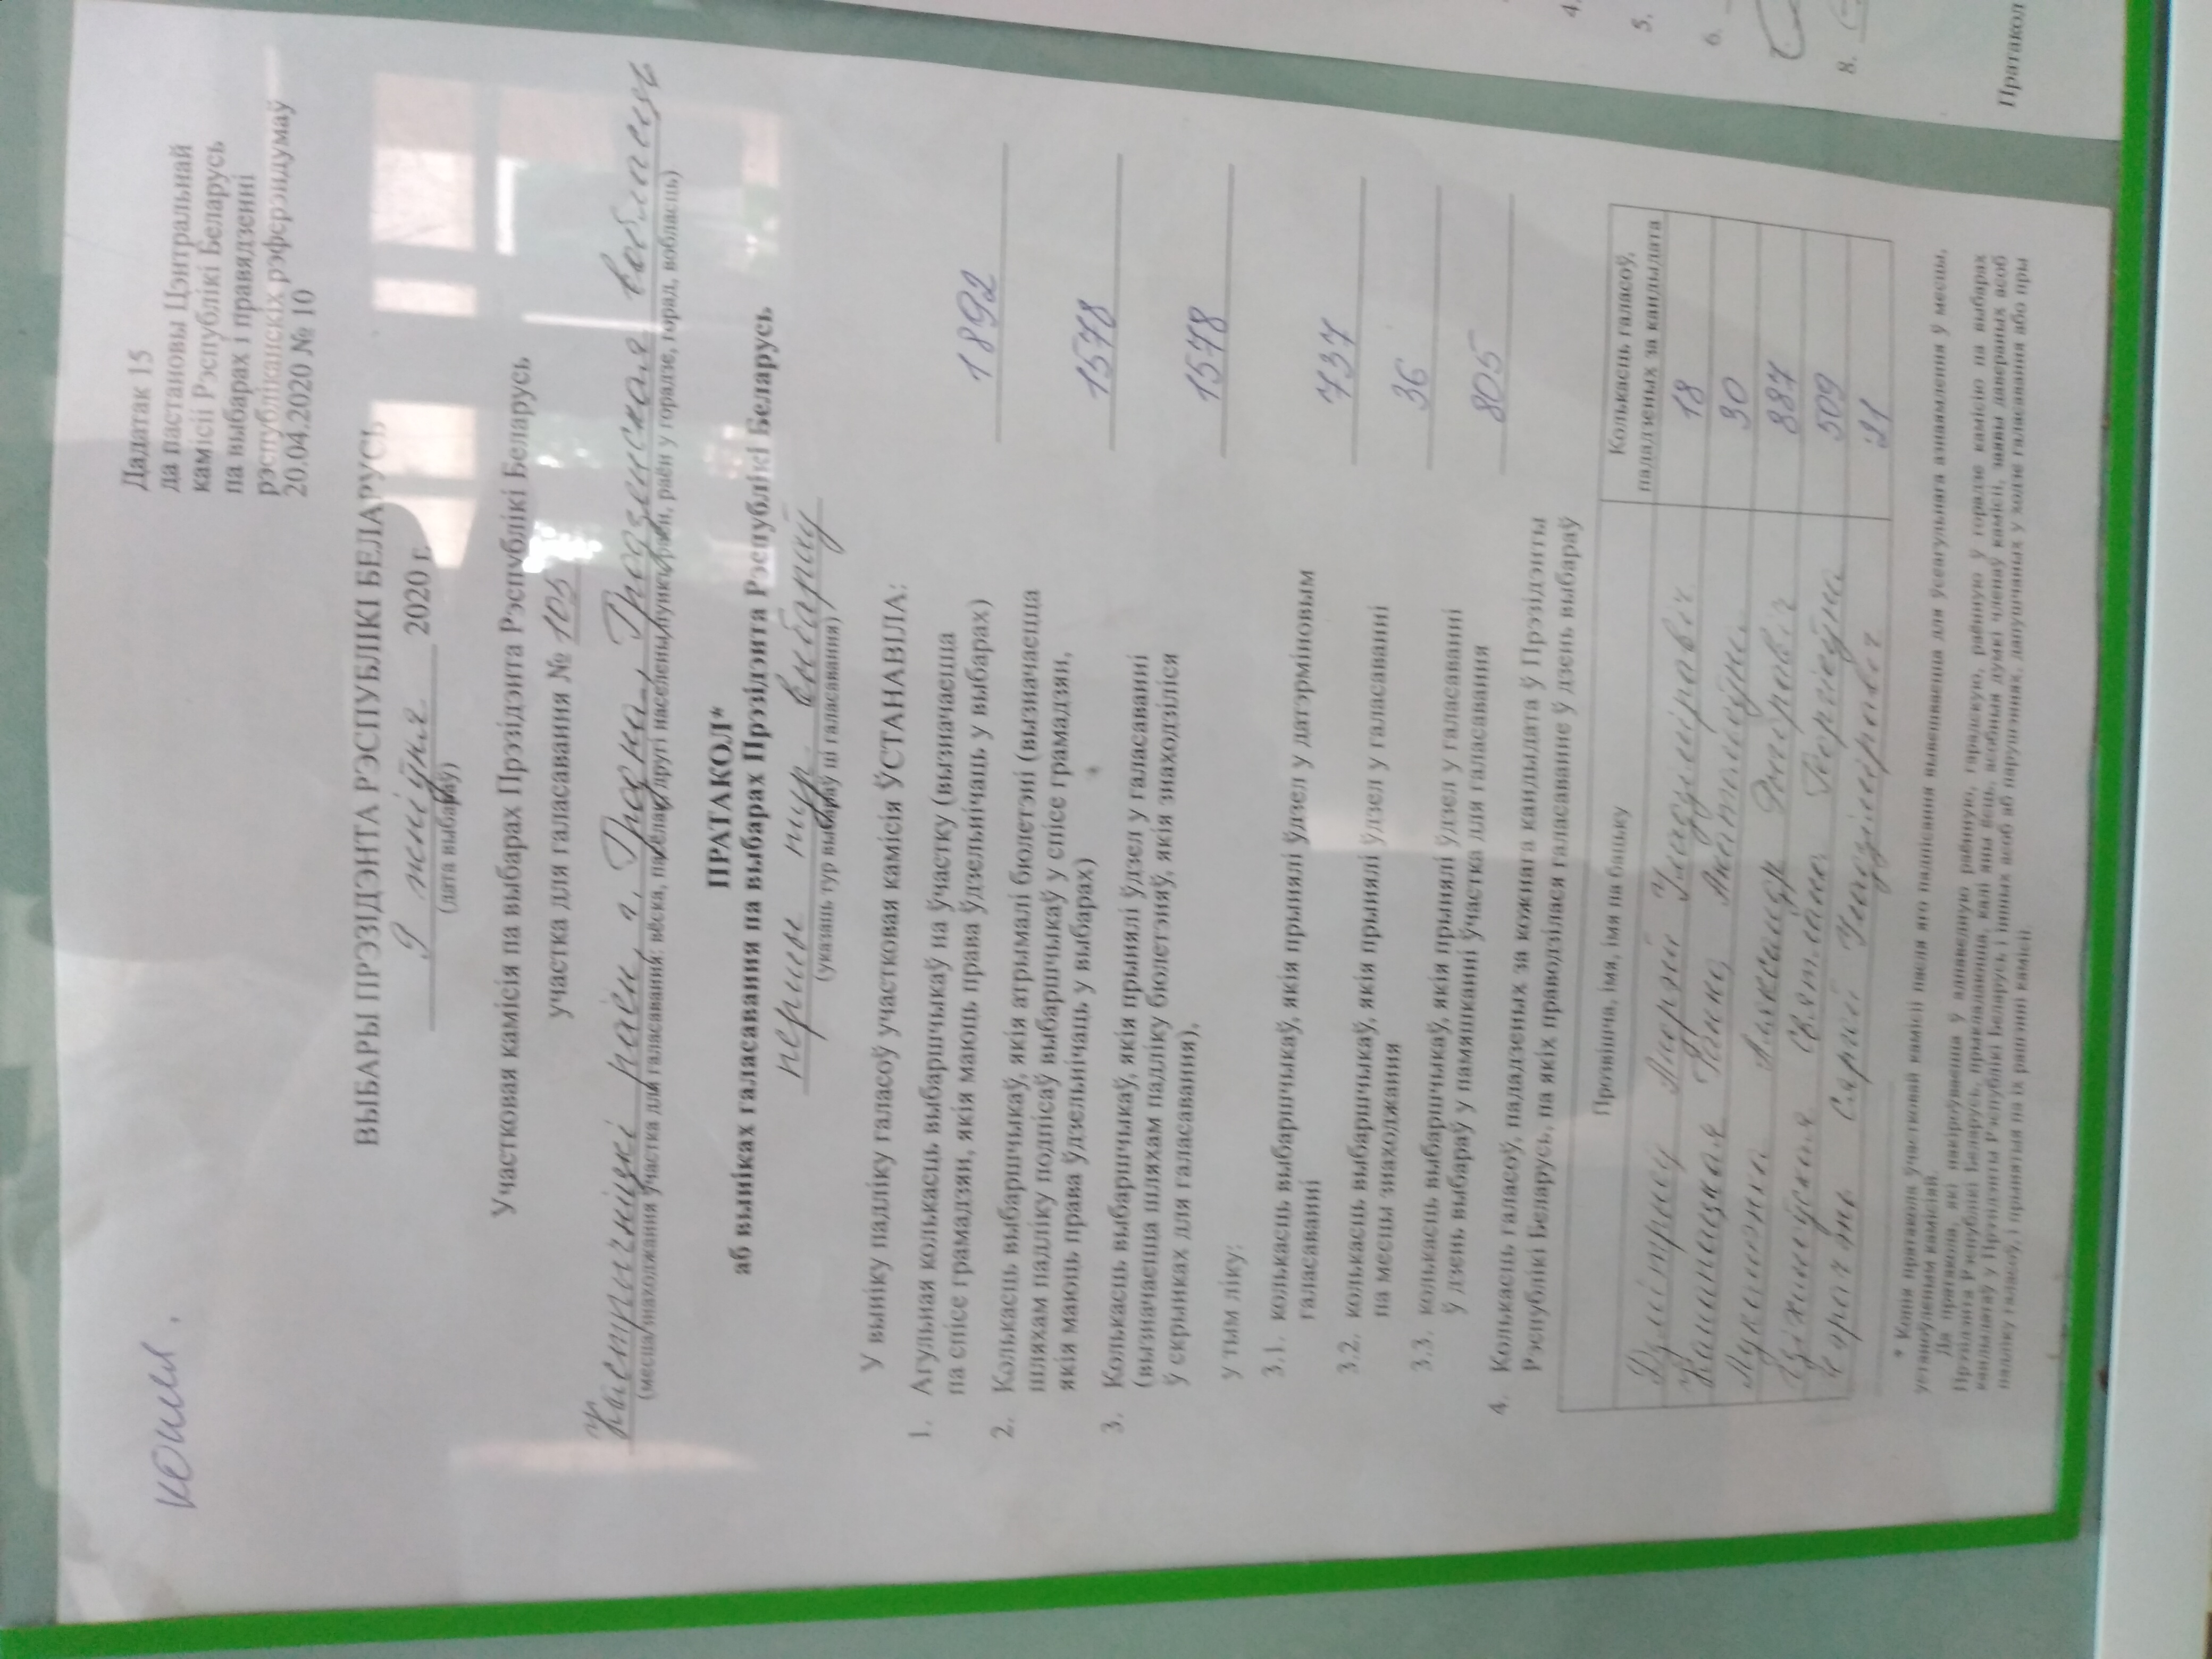 копия.
Дадатак 15
да пастановы Цэнтральнай
камісіі Рэспублікі Беларусь
па выбарах і правядзенні
рэспубліканскіх рэферэндумаў
20.04.2020 № 10
ВЫБАРЫ ПРЭЗІДЭНТА РЭСПУБЛІКІ БЕЛАРУСЬ
9 жніўня 2020 г.
(дата выбараў)
Участковая камісія па выбарах Прэзідэнта Рэспублікі Беларусь
участка для галасавання № 105
Кастрычніцкі раён, г. Гродна, Гродзенская вобласць
(месцазнаходжання участка для галасавання: вёска, пасёлак, другі населены пункт, раён, раён у горадзе, горад, вобласць)
ПРАТАКОЛ*
аб выніках галасавання па выбарах Прэзідэнта Рэспублікі Беларусь
першы тур выбараў
(указаць тур выбараў ці галасавання)
У выніку падліку галасоў участковая камісія ЎСТАНАВІЛА:
1. Агульная колькасць выбаршчыкаў на ўчастку (вызначаецца
па спісе грамадзян, якія маюць права ўдзельнічаць у выбарах) 1892
2. Колькасць выбаршчыкаў, якія атрымалі бюлетэні (вызначаецца
шляхам падліку подпісаў выбаршчыкаў у спісе грамадзян,
якія маюць права ўдзельнічаць у выбарах) 1578
3. Колькасць выбаршчыкаў, якія прынялі ўдзел у галасаванні
(вызначаецца шляхам падліку бюлетэняў, якія знаходзіліся
ў скрынках для галасавання), 1578
у тым ліку:
3.1. колькасць выбаршчыкаў, якія прынялі ўдзел у датэрміновым
галасаванні 737
3.2. колькасць выбаршчыкаў, якія прынялі ўдзел у галасаванні
па месцы знаходжання 36
3.3. колькасць выбаршчыкаў, якія прынялі ўдзел у галасаванні
ў дзень выбараў у памяшканні ўчастка для галасавання 805
4. Колькасць галасоў, пададзеных за кожнага кандыдата ў Прэзідэнты
Рэспублікі Беларусь, па якіх праводзілася галасаванне ў дзень выбараў
Прозвішча, імя, імя па бацьку Колькасць галасоў,
пададзеных за кандыдата
Дзмітрыеў Андрэй Уладзіміравіч 18
Канапацкая Ганна Анатольеўна 30
Лукашэнка Аляксандр Рыгоравіч 887
Ціханоўская Святлана Георгіеўна 509
Чэрачэнь Сяргей Уладзіміравіч 21
* Копія пратакола ўчастковай камісіі пасля яго падпісання вывешваецца для ўсеагульнага азнаямлення ў месцы,
устаноўленым камісіяй.
Да пратакола, які накіроўваецца ў адпаведную раённую, гарадскую, раённую ў горадзе камісію па выбарах
Прэзідэнта Рэспублікі Беларусь, прыкладаюцца, калі яны ёсць, асобныя думкі членаў камісіі, заявы давераных асоб
кандыдатаў у Прэзідэнты Рэспублікі Беларусь і іншых асоб аб парушэннях, дапушчаных у ходзе галасавання або пры
падліку галасоў, і прынятыя па іх рашэнні камісіі.
4.
5.
6.
8.
Пратакол